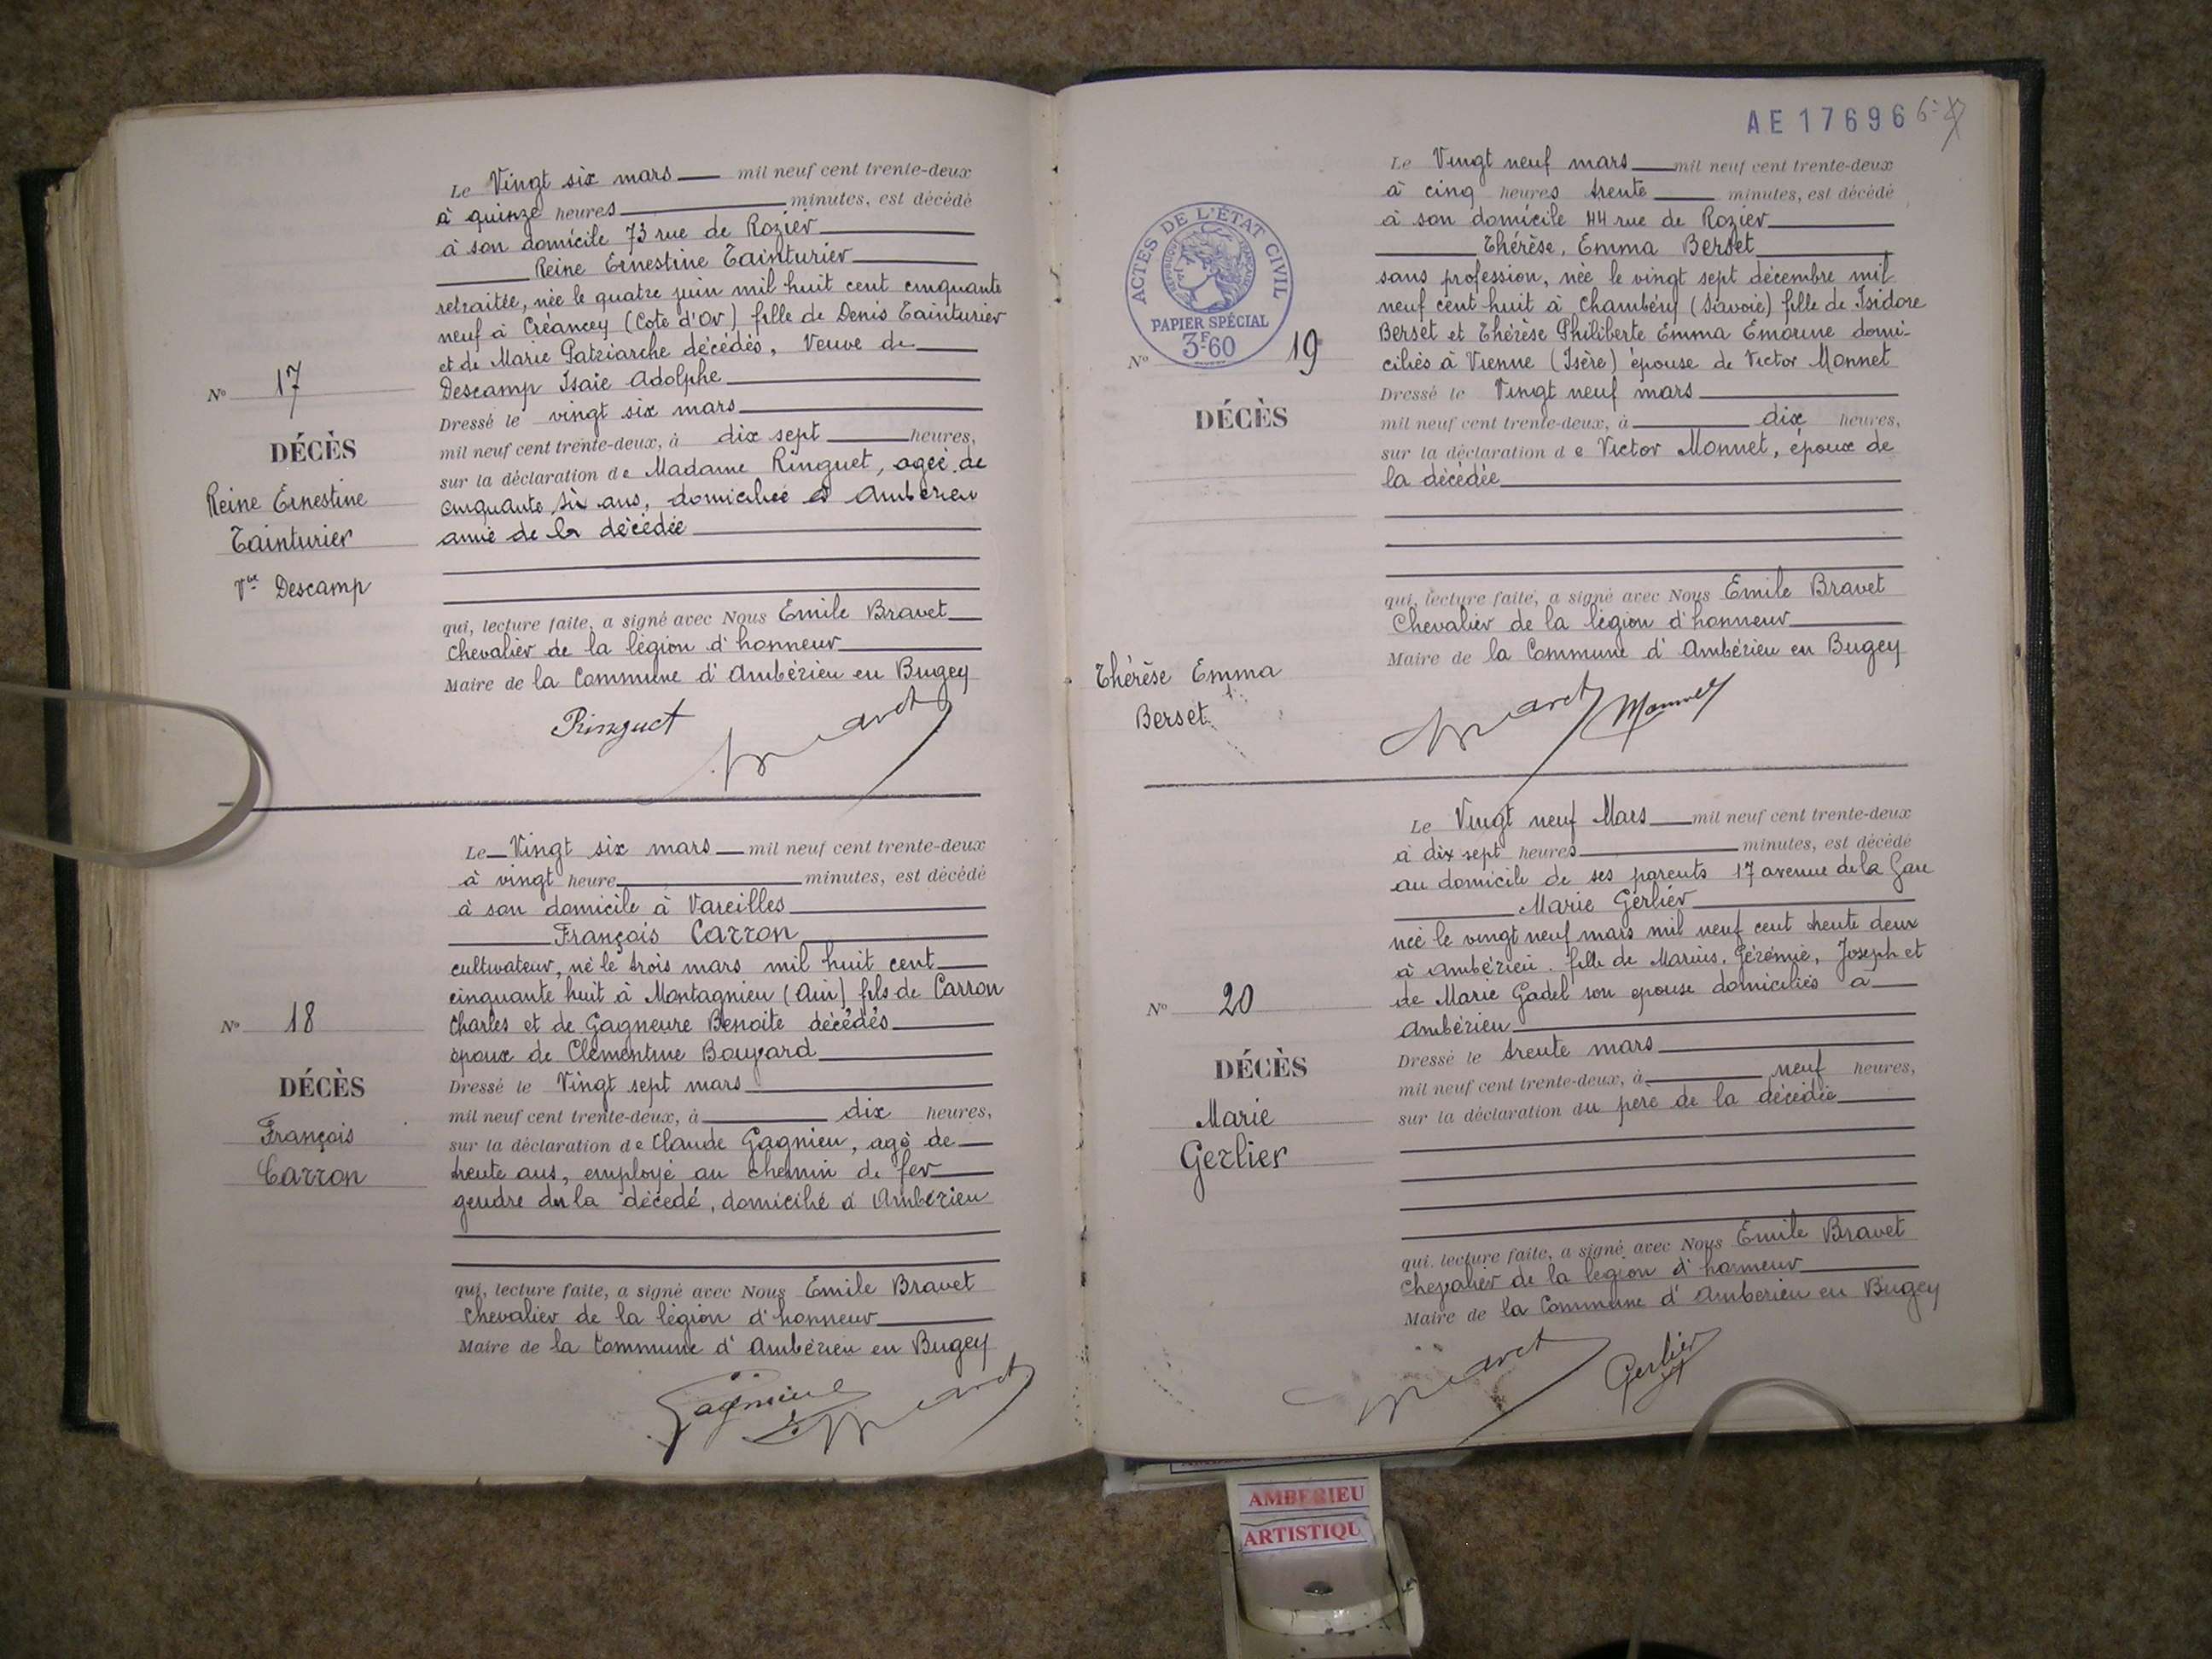 Le Vingt six mars mil neuf cent trente-deux
à quinze heures minutes, est décédé
à son domicile 73 rue de Rozier
Reine Ernestine Tainturier
retraitée, née le quatre juin mil huit cent cinquante
neuf à Créancey (Cote d'Or) fille de Denis Tainturier
et de Marie Patriarche décédés, Veuve de
Descamp Isaie Adolphe
Dressé le vingt six mars
mil neuf cent trente-deux, à dix sept heures,
sur la déclaration de Madame Ringuet, agée de
cinquante six ans, domiciliée à Ambérieu
amie de la décédée
qui, lecture faite, a signé avec Nous Emile Bravet
Chevalier de la légion d'honneur
Maire de la Commune d'Ambérieu en Bugey
Ringuet
N° 17
DÉCÈS
Reine Ernestine
Tainturier
Vve Descamp
Le Vingt six mars mil neuf cent trente-deux
à vingt heure minutes, est décédé
à son domicile à Vareilles
François Carron
cultivateur, né le trois mars mil huit cent
cinquante huit à Montagnieu (Ain) fils de Carron
Charles et de Gagneure Benoite décédés
époux de Clémentine Bouvard
Dressé le Vingt sept mars
mil neuf cent trente-deux, à dix heures,
sur la déclaration de Claude Gagnieu, agé de
trente ans, employé au chemin de fer
gendre du la décédé, domicilié à Ambérieu
qui, lecture faite, a signé avec Nous Emile Bravet
Chevalier de la légion d'honneur
Maire de la Commune d'Ambérieu en Bugey
N° 18
DÉCÈS
François
Carron
AE17696
Le Vingt neuf mars mil neuf cent trente-deux
à cinq heures trente minutes, est décédé
à son domicile 44 rue de Rozier
Thérèse, Emma Berset
sans profession, née le vingt sept décembre mil
neuf cent huit à Chambéry (Savoie) fille de Isidore
Berset et Thérèse Philiberte Emma Emorine domi-
ciliés à Vienne (Isère) épouse de Victor Monnet
Dressé le Vingt neuf mars
mil neuf cent trente-deux, à dix heures,
sur la déclaration de Victor Monnet, époux de
la décédée
qui, lecture faite, a signé avec Nous Emile Bravet
Chevalier de la légion d'honneur
Maire de la Commune d'Ambérieu en Bugey
Monnet
ACTES DE L'ÉTAT CIVIL
PAPIER SPÉCIAL
3F60
N° 19
DÉCÈS
Thérèse Emma
Berset
Le Vingt neuf Mars mil neuf cent trente-deux
à dix sept heures minutes, est décédé
au domicile de ses parents 17 avenue de la Gare
Marie Gerlier
née le vingt neuf mars mil neuf cent trente deux
à Ambérieu. fille de Marius, Jérémie, Joseph et
de Marie Gadel son épouse domiciliés à
Ambérieu
Dressé le trente mars
mil neuf cent trente-deux, à neuf heures,
sur la déclaration du père de la décédée
qui, lecture faite, a signé avec Nous Emile Bravet
Chevalier de la légion d'honneur
Maire de la Commune d'Ambérieu en Bugey
Gerlier
N° 20
DÉCÈS
Marie
Gerlier
AMBERIEU
ARTISTIQU